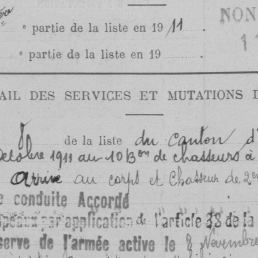 partie de la liste en 1911
NON
partie de la liste en 19
AIL DES SERVICES ET MUTATIONS D
de la liste du canton d'
Octobre 1911 au 10 Bon de chasseurs à
Arrivé au corps et Chasseur de 2e
de conduite Accordé
par application de l'article 33 de la
serve de l'armée active le 8 Novembre